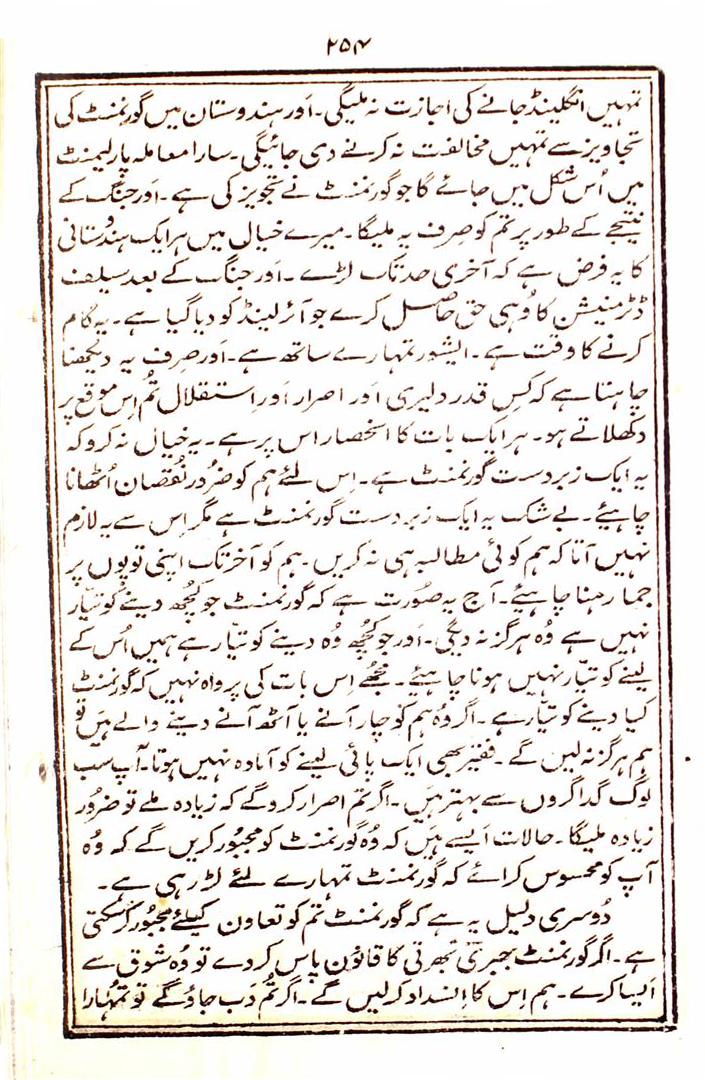 ۲۵۴
تمہیں انگلینڈ جانے کی اجازت نہ ملیگی۔ اَور ہندوستان میں گورنمنٹ کی
تجاویز سے تمہیں مخالفت نہ کرنے دی جائیگی۔ سارا معاملہ پارلیمنٹ
میں اُس شکل میں جائے گا جو گورنمنٹ نے تجویز کی ہے۔ اَور جنگ کے
نتیجے کے طور پر تم کو صِرف یہ ملیگا۔ میرے خیال میں ہر ایک ہندوستانی
کا یہ فرض ہے کہ آخری حد تک لڑے۔ اَور جنگ کے بعد سیلف
ڈٹرمنیشن کا وُہی حق حاصل کرے جو آئرلینڈ کو دیا گیا ہے۔ یہ کام
کرنے کا وقت ہے۔ ایشور تمہارے ساتھ ہے۔ اَور صِرف یہ دیکھنا
چاہتا ہے کہ کِس قدر دلیری اَور اصرار اَور استقلال تُم اِس موقع پر
دکھلاتے ہو۔ ہر ایک بات کا انحصار اس پر ہے۔ یہ خیال نہ کرو کہ
یہ ایک زبردست گورنمنٹ ہے۔ اِس لئے ہم کو ضرُور نُقصان اُٹھانا
چاہیئے۔ بے شک یہ ایک زبردست گورنمنٹ ہے مگر اِس سے یہ لازم
نہیں آتا کہ ہم کوئی مطالبہ ہی نہ کریں۔ ہم کو آخر تک اپنی توپوں پر
جما رہنا چاہیئے۔ آج یہ صُورت ہے کہ گورنمنٹ جو کچُھ دینے کو تیّار
نہیں ہے وُہ ہرگز نہ دیگی۔ اَور جو کچُھ وُہ دینے کو تیّار ہے ہمیں اُس کے
لینے کو تیّار نہیں ہونا چاہیئے۔ مجُھے اِس بات کی پرواہ نہیں کہ گورنمنٹ
کیا دینے کو تیّار ہے۔ اگر وُہ ہم کو چار آنے یا آٹھ آنے دینے والے ہَیں تو
ہم ہرگز نہ لیں گے۔ فقیر بھی ایک پائی لینے کو آمادہ نہیں ہوتا۔ آپ سب
لوگ گداگروں سے بہتر ہَیں۔ اگر تم اصرار کرو گے کہ زیادہ ملے تو ضرُور
زیادہ ملیگا۔ حالات اَیسے ہَیں کہ وُہ گورنمنٹ کو مجبُور کریں گے کہ وُہ
آپ کو محسوس کرائے کہ گورنمنٹ تمہارے لئے لڑ رہی ہے۔
دُوسری دلیل یہ ہے کہ گورنمنٹ تم کو تعاون کیلئے مجبُور کر سکتی
ہے۔ اگر گورنمنٹ جبری بھرتی کا قانُون پاس کر دے تو وُہ شوق سے
اَیسا کرے۔ ہم اِس کا اِنسداد کر لیں گے۔ اگر تُم دَب جاؤ گے تو تمہارا